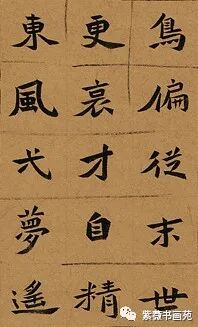 鳥偏從末世
更哀才自精
東風弌夢遙
紫薇书画苑